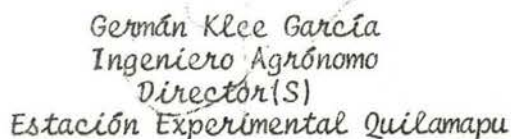 Germán Klee García
Ingeniero Agrónomo
Director(S)
Estación Experimental Quilamapu